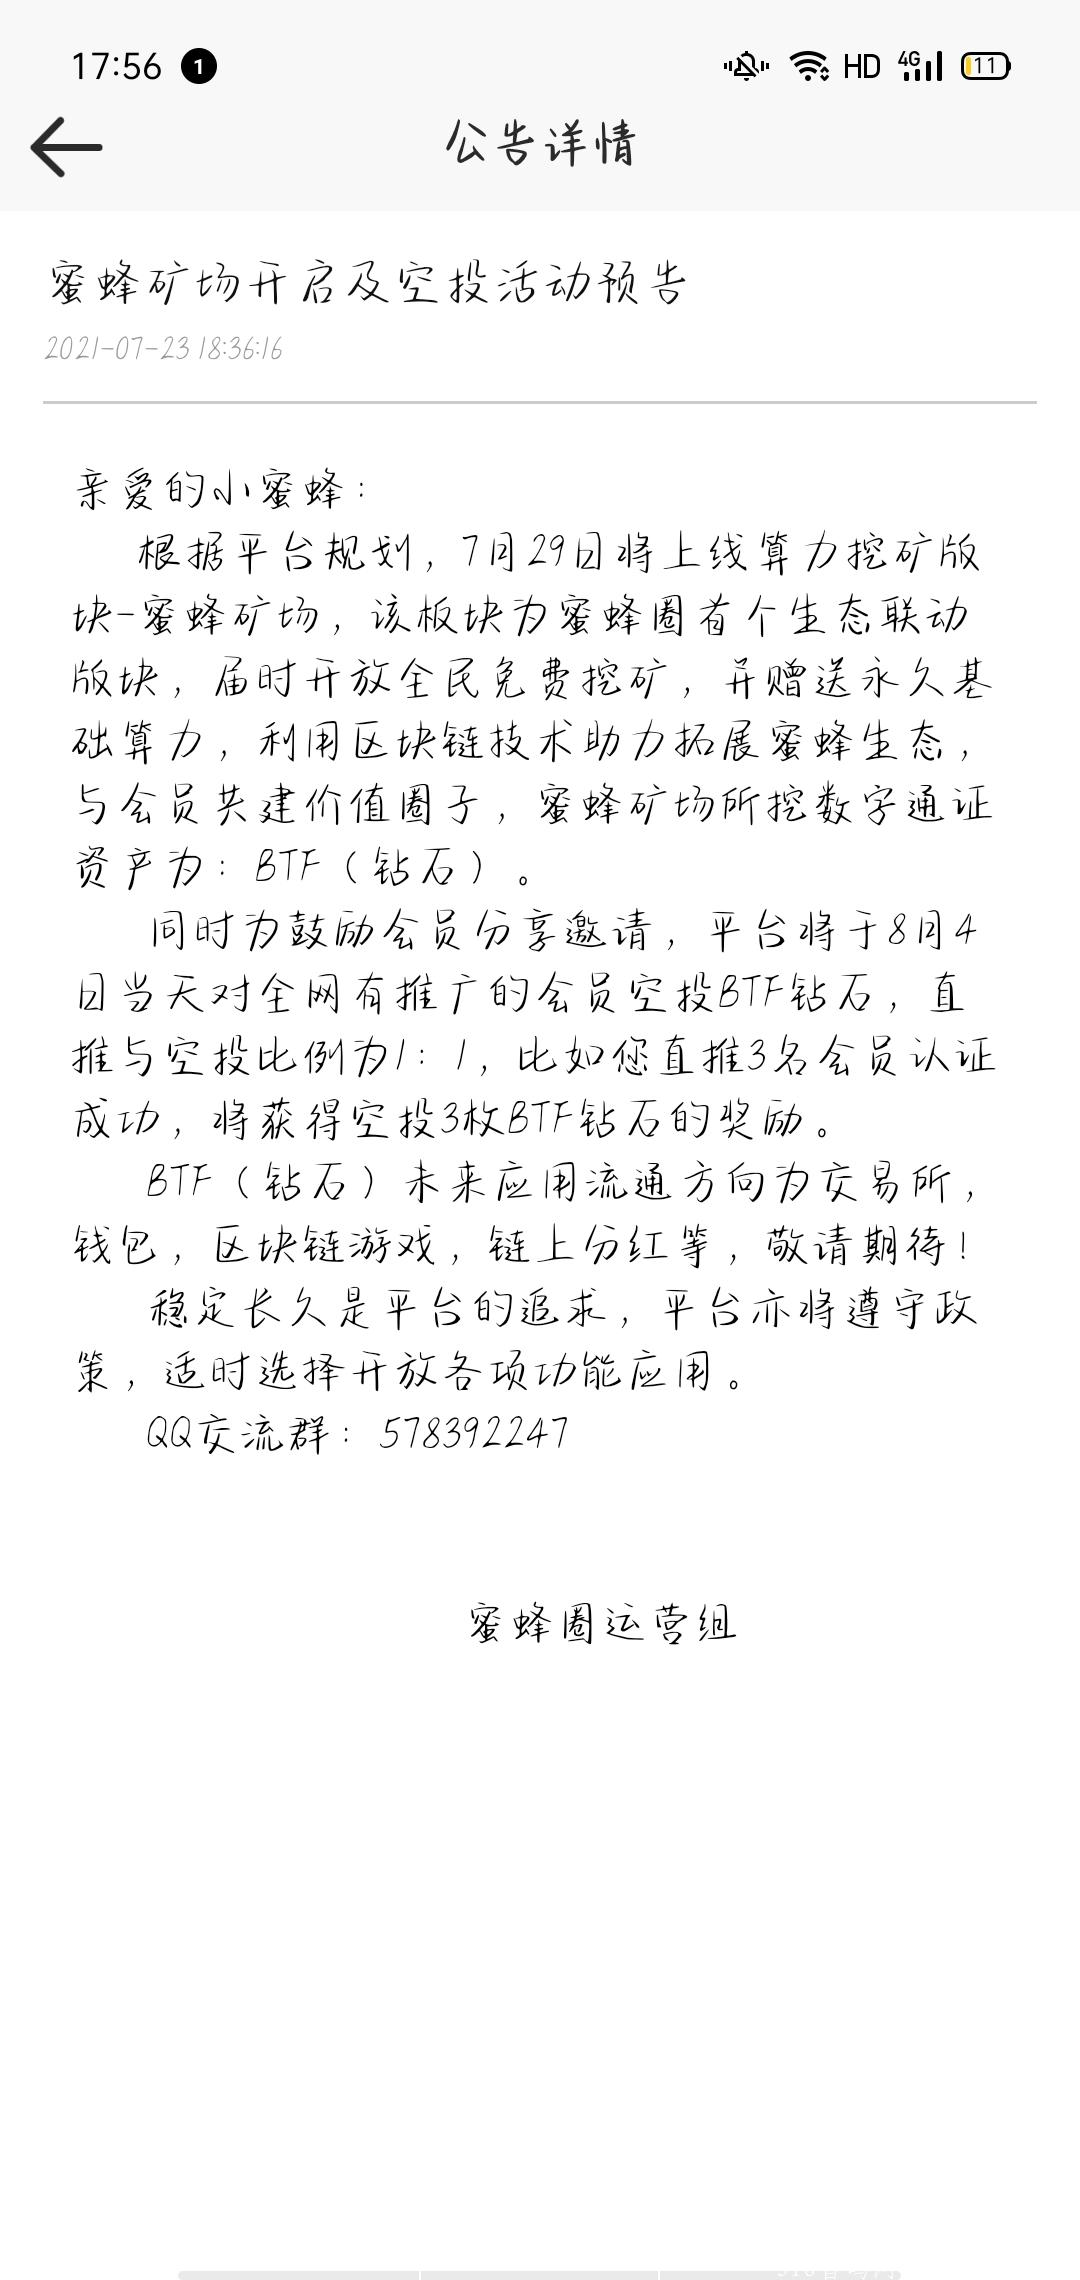 17:56 1 HD 4G 11
公告详情
蜜蜂矿场开启及空投活动预告
2021-07-23 18:36:16
亲爱的小蜜蜂：
根据平台规划，7月29日将上线算力挖矿版
块-蜜蜂矿场，该板块为蜜蜂圈首个生态联动
版块，届时开放全民免费挖矿，并赠送永久基
础算力，利用区块链技术助力拓展蜜蜂生态，
与会员共建价值圈子，蜜蜂矿场所挖数字通证
资产为：BTF（钻石）。
同时为鼓励会员分享邀请，平台将于8月4
日当天对全网有推广的会员空投BTF钻石，直
推与空投比例为1：1，比如您直推3名会员认证
成功，将获得空投3枚BTF钻石的奖励。
BTF（钻石）未来应用流通方向为交易所，
钱包，区块链游戏，链上分红等，敬请期待！
稳定长久是平台的追求，平台亦将遵守政
策，适时选择开放各项功能应用。
QQ交流群：578392247
蜜蜂圈运营组